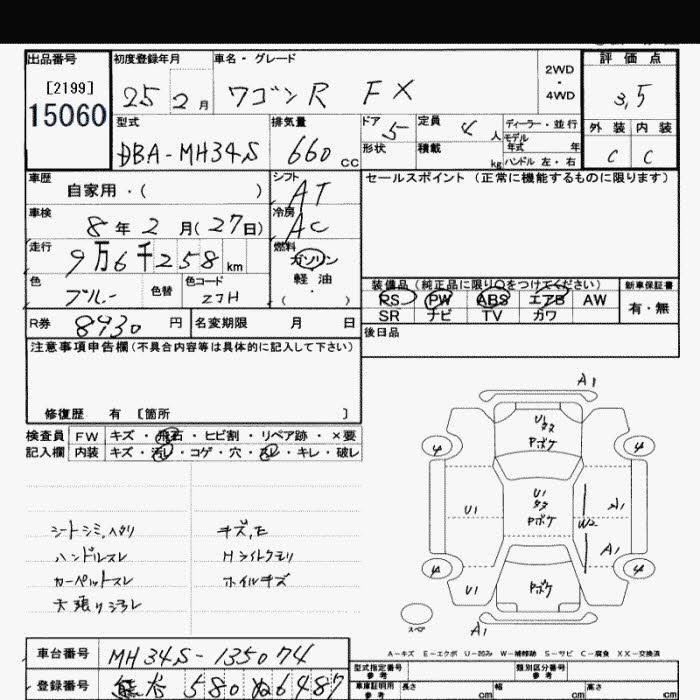 出品番号 初度登録年月 車名・グレード 2WD・4WD 評価点
[2199] 25 2月 ワゴンR FX 3.5
15060
型式 排気量 ドア 5 定員 4人 ディーラー・並行 外装 内装
DBA-MH34S 660cc 形状 積載 kg モデル年式 年 C C
ハンドル 左・右
車歴 シフト セールスポイント (正常に機能するものに限ります)
自家用・( ) AT
車検 冷房
8年2月(27日) AC
走行 燃料
9万6千258km ガソリン
色 色替 色コード 軽油
ブルー ZJH ( ・ )
装備品(純正品に限り○をつけてください) 新車保証書
PS PW ABS エアB AW 有・無
SR ナビ TV カワ
R券 8930円 名変期限 月 日
後日品
注意事項申告欄(不具合内容等は具体的に記入して下さい)
修復歴 有 [箇所 ]
検査員 FW キズ・飛石・ヒビ割・リペア跡・×要
記入欄 内装 キズ・汚レ・コゲ・穴・スレ・キレ・破レ
シートシミ,ヘタリ キズ,E
ハンドルスレ Hライトクモリ
カーペットスレ ホイルキズ
天張りヨゴレ
A1
U1
タタ
Pボケ
4 4
U1 U1 タタ Pボケ W2 A1
A1
4 4
U1 Pボケ
スペア
A1
A-キズ E-エクボ U-凹み W-補修跡 S-サビ C-腐食 XX-交換済
車台番号 MH34S-135074
型式指定番号 参考 類別区分番号 参考
登録番号 熊谷 580 ぬ 6487
車庫証明用 参考 長さ cm 幅 cm 高さ cm